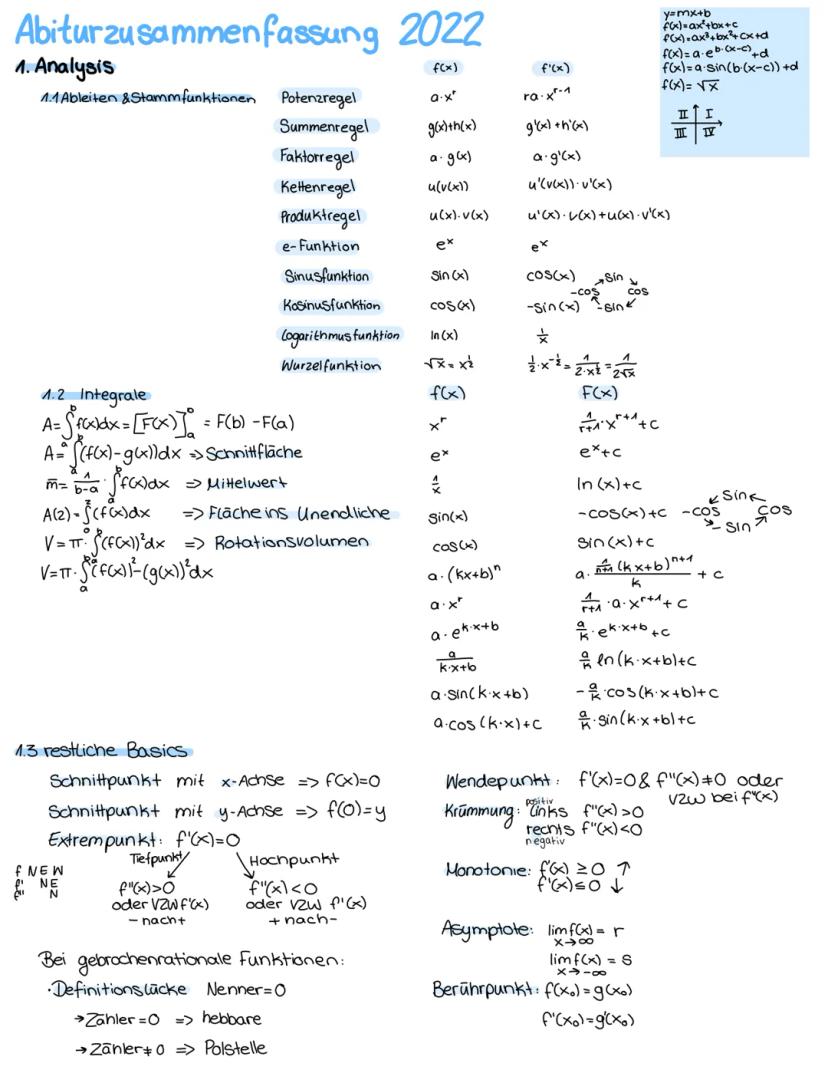 Abiturzusammenfassung 2022
y=mx+b
f(x)=ax²+bx+c
f(x)=ax³+bx²+cx+d
f(x)=a·e^b·(x-c)+d
f(x)=a·sin(b·(x-c))+d
f(x)=√x
II I
III IV
1. Analysis f(x) f'(x)
1.1 Ableiten & Stammfunktionen Potenzregel a·x^r ra·x^r-1
Summenregel g(x)+h(x) g'(x)+h'(x)
Faktorregel a·g(x) a·g'(x)
Kettenregel u(v(x)) u'(v(x))·v'(x)
Produktregel u(x)·v(x) u'(x)·v(x)+u(x)·v'(x)
e-Funktion e^x e^x
Sinusfunktion sin(x) cos(x)
Kosinusfunktion cos(x) -sin(x)
sin cos -sin -cos
Logarithmusfunktion ln(x) 1/x
Wurzelfunktion √x = x^1/2 1/2·x^-1/2 = 1/(2·x^1/2) = 1/(2√x)
1.2 Integrale f(x) F(x)
A=∫_a^b f(x)dx = [F(x)]_a^b = F(b)-F(a)
A=∫_a^b (f(x)-g(x))dx => Schnittfläche
m̄= 1/(b-a)·∫_a^b f(x)dx => Mittelwert
A(z)=∫_0^z (f(x)dx => Fläche ins Unendliche
V=π·∫_a^b (f(x))²dx => Rotationsvolumen
V=π·∫_a^b (f(x))²-(g(x))²dx
x^r 1/(r+1)·x^r+1+c
e^x e^x+c
1/x ln(x)+c
sin(x) -cos(x)+c
cos(x) sin(x)+c
sin -cos -sin cos
a·(kx+b)^n a·(1/(n+1)(kx+b)^n+1)/k + c
a·x^r 1/(r+1)·a·x^r+1+c
a·e^k·x+b a/k·e^k·x+b+c
a/(k·x+b) a/k ln(k·x+b)+c
a·sin(k·x+b) -a/k·cos(k·x+b)+c
a·cos(k·x)+c a/k·sin(k·x+b)+c
1.3 restliche Basics
Schnittpunkt mit x-Achse => f(x)=0
Schnittpunkt mit y-Achse => f(0)=y
Extrempunkt: f'(x)=0
Tiefpunkt Hochpunkt
f N E W
f' N E
f'' N
f''(x)>0 f''(x)<0
oder VZW f'(x) oder VZW f'(x)
- nach + + nach -
Bei gebrochenrationale Funktionen:
·Definitionslücke Nenner=0
→Zähler=0 => hebbare
→Zähler≠0 => Polstelle
Wendepunkt: f'(x)=0 & f''(x)≠0 oder
VZW bei f''(x)
positiv
Krümmung: links f''(x)>0
rechts f''(x)<0
negativ
Monotonie: f'(x)≥0 ↑
f'(x)≤0 ↓
Asymptote: lim f(x) = r
x→∞
lim f(x) = s
x→-∞
Berührpunkt: f(x₀)=g(x₀)
f'(x₀)=g'(x₀)